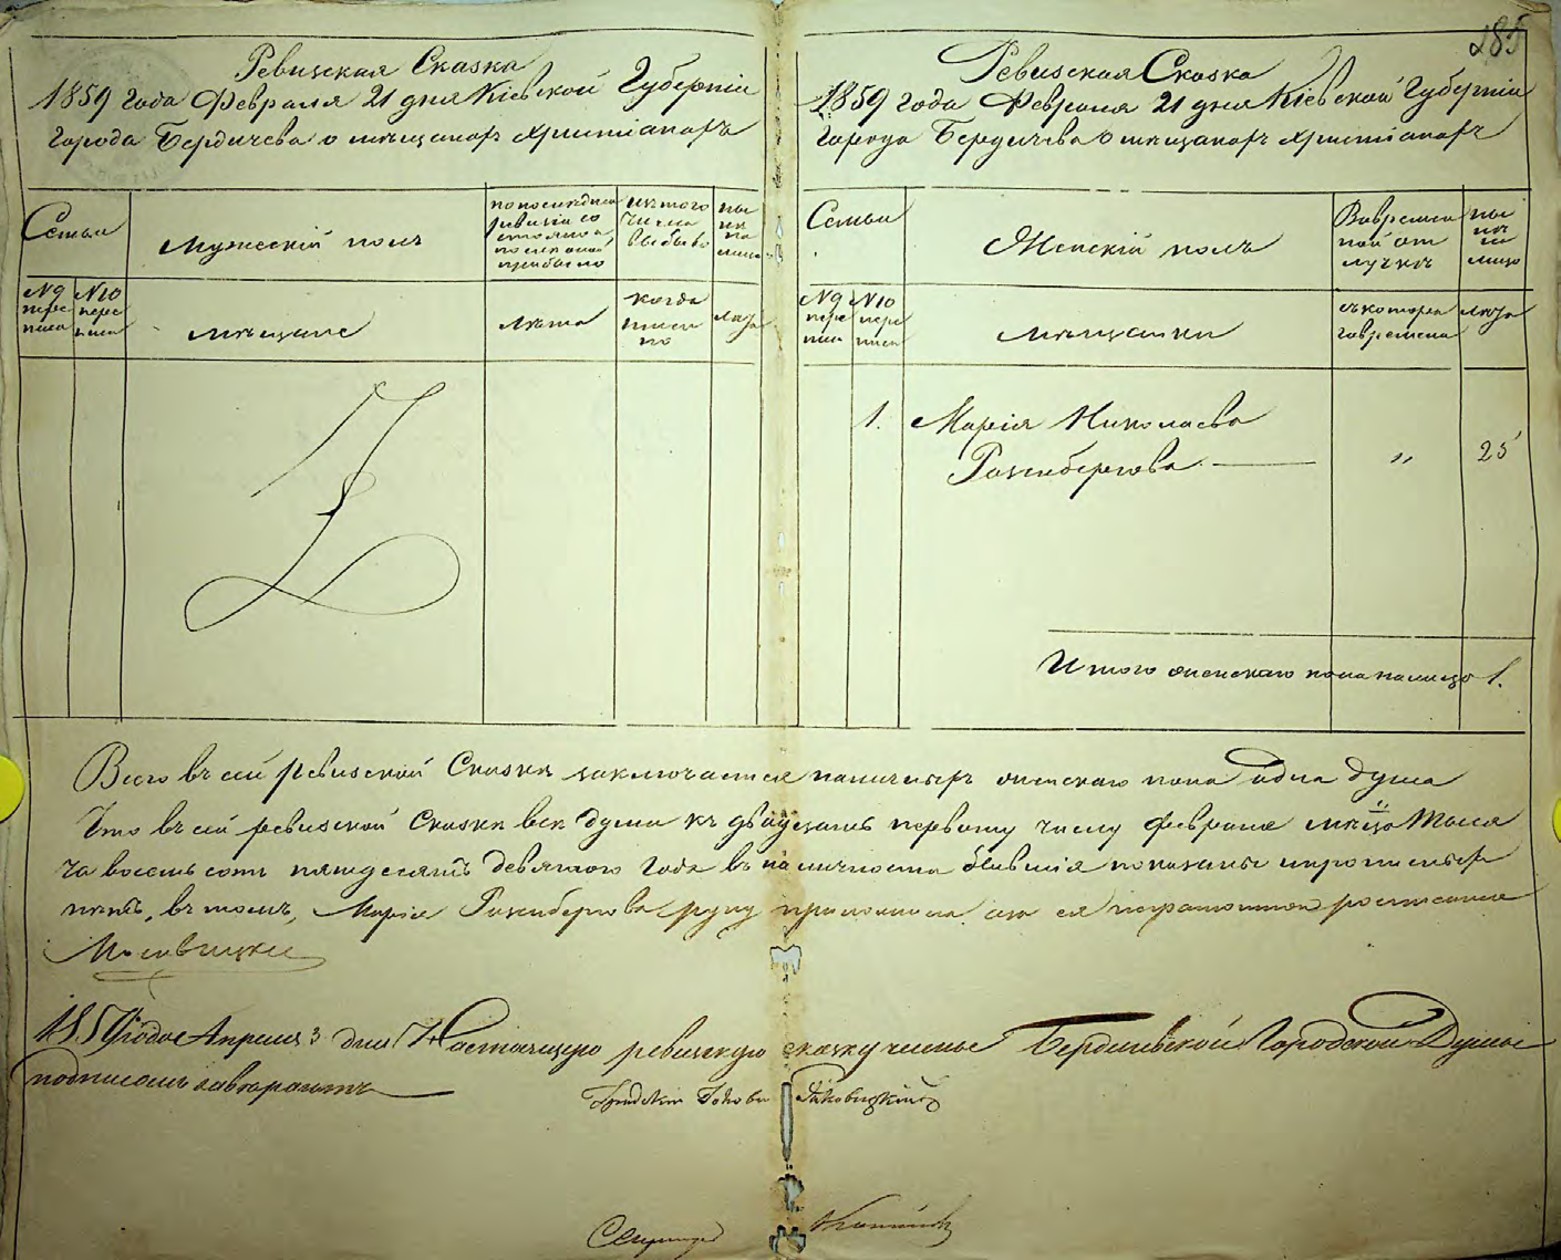 285
Ревизская Сказка
1859 года Февраля 21 дня Кіевской Губерніи
города Бердичева о мѣщанахъ христіанахъ
Семьи
Мужескій полъ
по последней ревизіи состояло и после оной прибыло
изъ того числа выбыло
ныне на лицо
№ 9 переписи
№ 10 переписи
мѣщане
лѣта
когда именно
лѣта
Ревизская Сказка
1859 года Февраля 21 дня Кіевской Губерніи
города Бердичева о мѣщанахъ христіанахъ
Семьи
Женскій полъ
Вовременной отлучкѣ
ныне на лицо
№ 9 переписи
№ 10 переписи
мѣщанки
съ котораго времени
лѣта
1. Марія Николаева
Розенбергова — „ 25
Итого женскаго пола налицо 1.
Всего въ сей ревизской Сказкѣ заключается наличныхъ женскаго пола одна душа
Что въ сей ревизской Сказкѣ всѣ души къ двадцать первому числу февраля мѣсяца тыся
ча восемь сотъ пятьдесятъ девятого года въ наличности бывшія показаны и прописныхъ
нѣтъ, въ томъ, Марія Розенбергова руку приложила, а за ея неграмотной росписался
1859 года Апреля 3 дня Настоящую ревизскую сказку члены Бердичевской Городской Думы
подписомъ
Градскій Голова